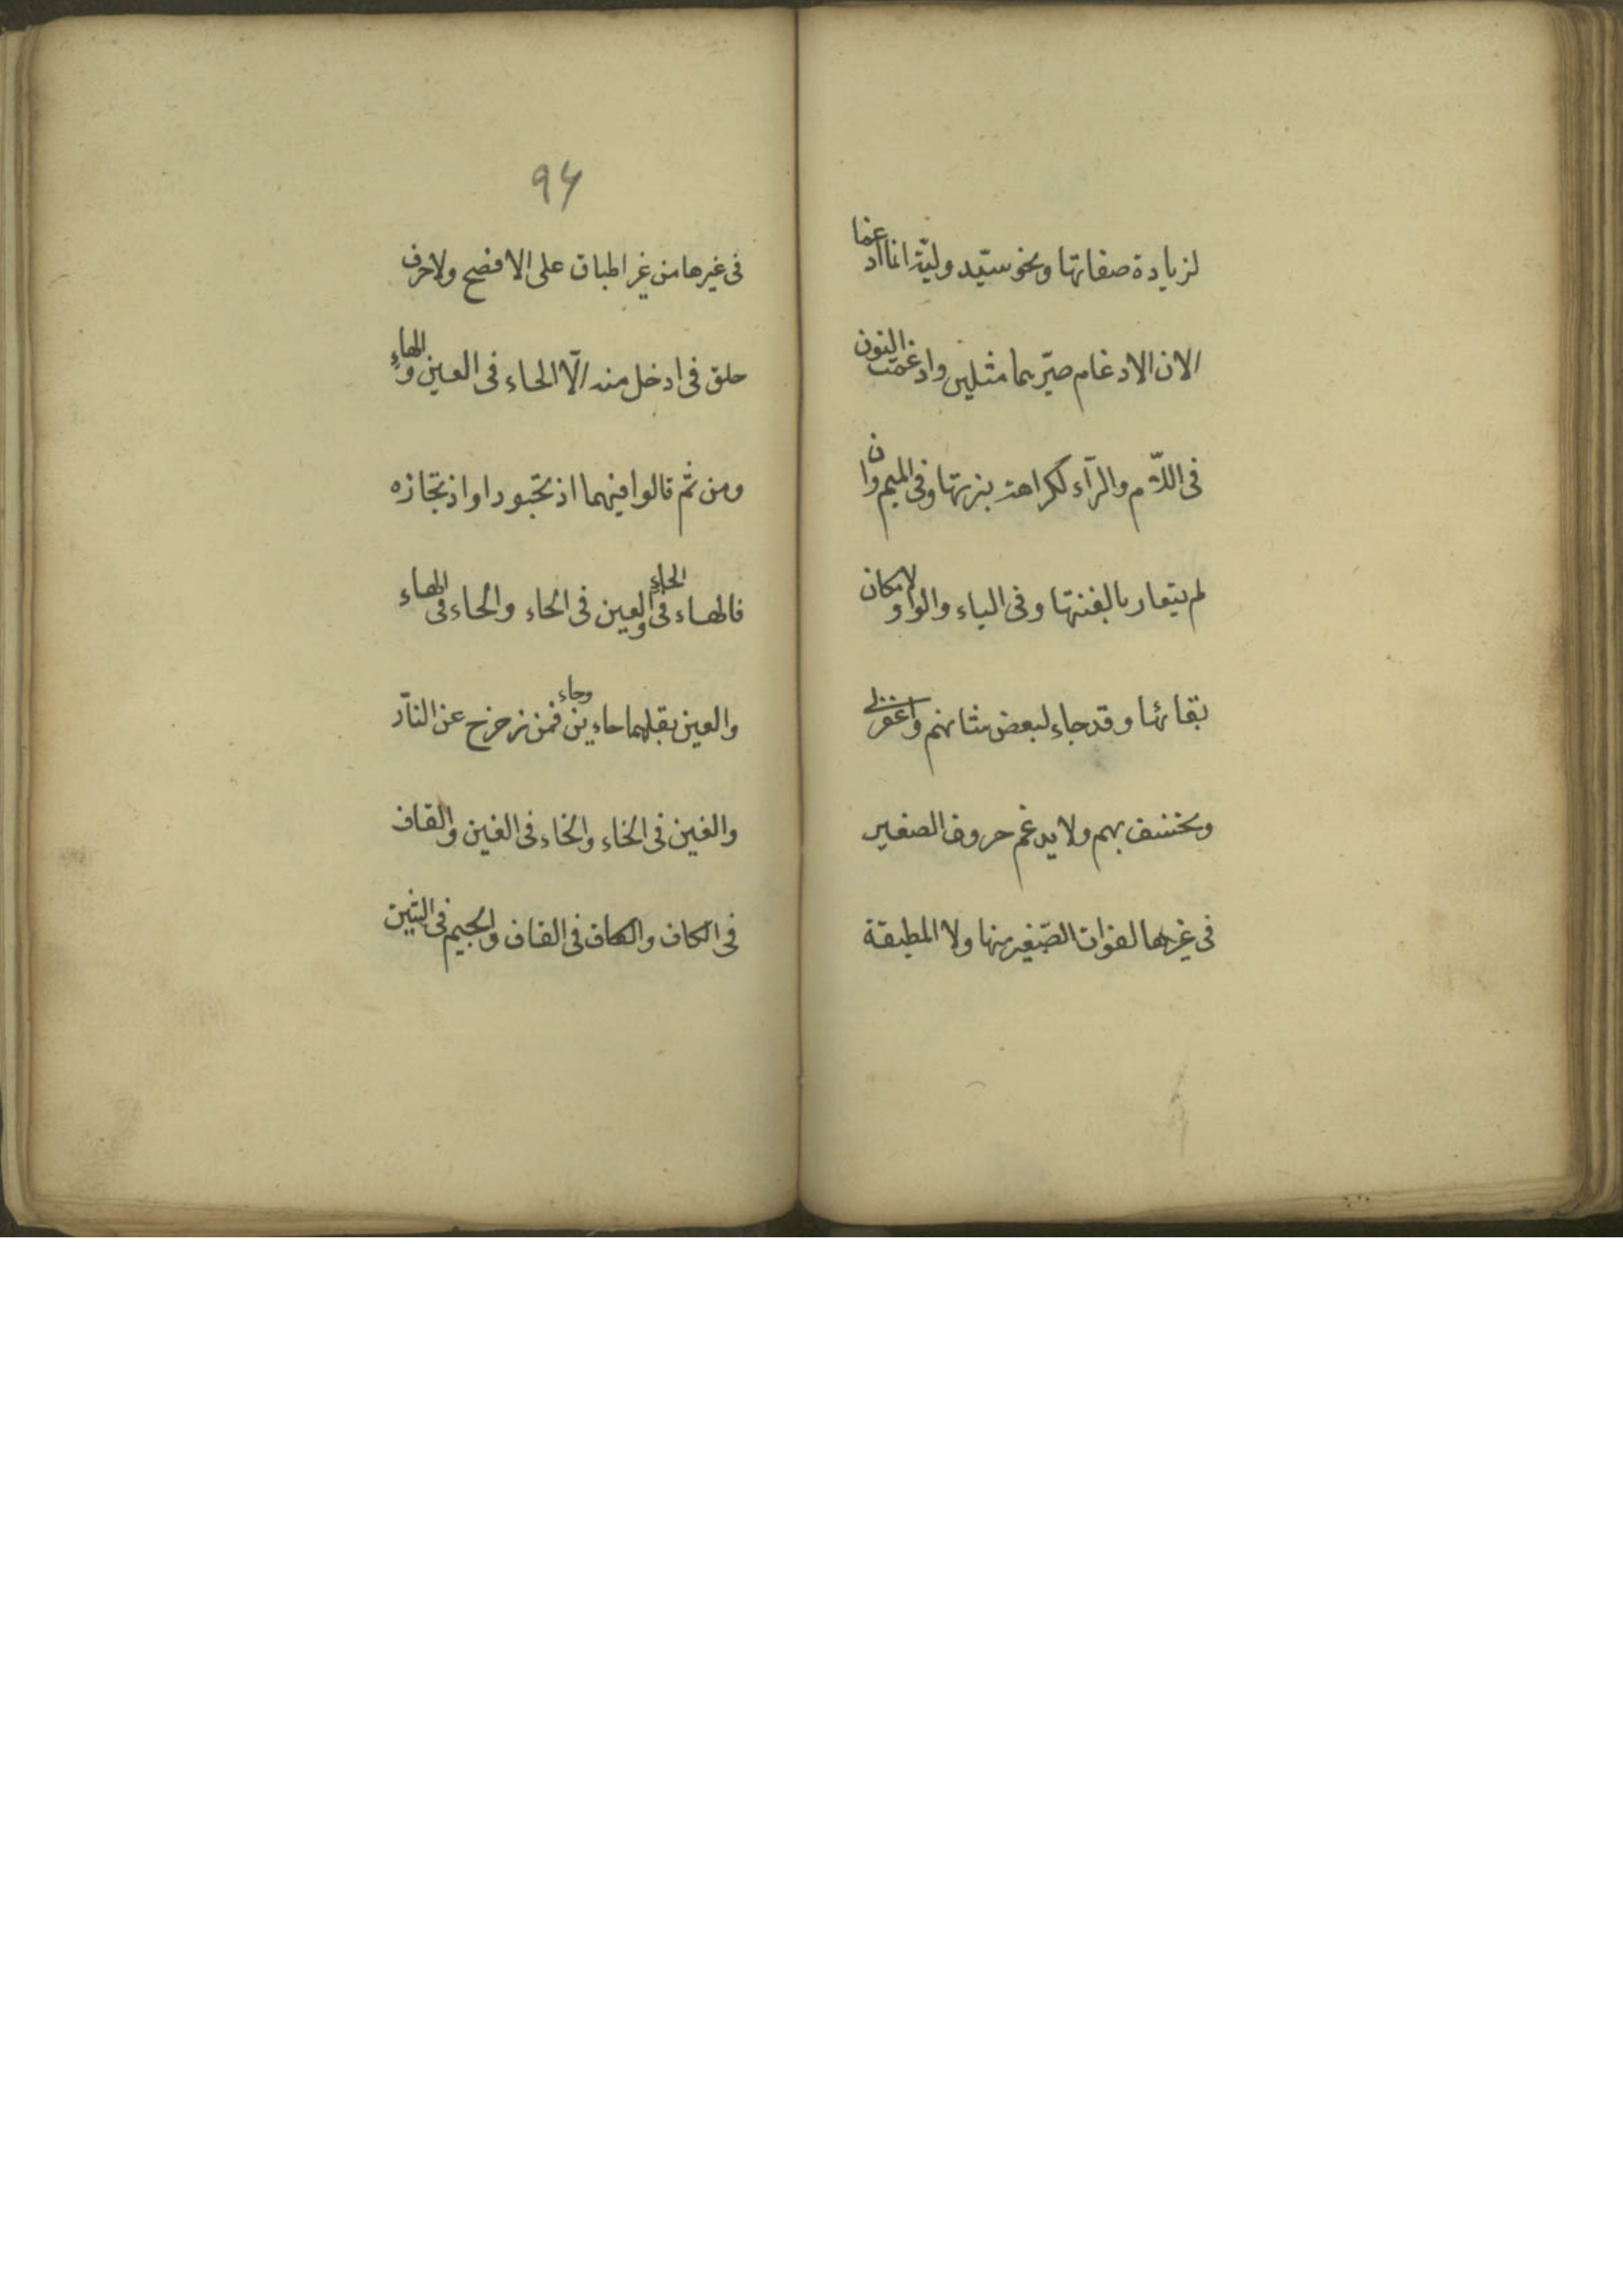 لزيادة صفاتها ونحو سيّد وليّة انما ادغما
الان الادغام صيّرهما مثلين وادغمت النون
فى اللّام والرّاء لكراهة نبرتها وفى الميم وان
لم يتقاربا لغنتها وفى الياء والواو لامكان
بقائها وقد جاء لبعض شانهم واغفرلى
ونخسف بهم ولا يدغم حروف الصفير
فى غيرها لفوات الصّفير منها ولا المطبقة
94
فى غيرها من غير اطباق على الافصح ولا حرف
حلق فى ادخل منه الّا الحاء فى العين والهاء
ومن ثمّ قالوا فيهما اذبحّبودا واذبحّاذه
فالهاء فى الحاء والعين فى الحاء والحاء فى الهاء
والعين بقلبهما حاءين وجاء فمن زحزح عن النّار
والغين فى الخاء والخاء فى الغين والقاف
فى الكاف والكاف فى القاف والجيم فى الشين